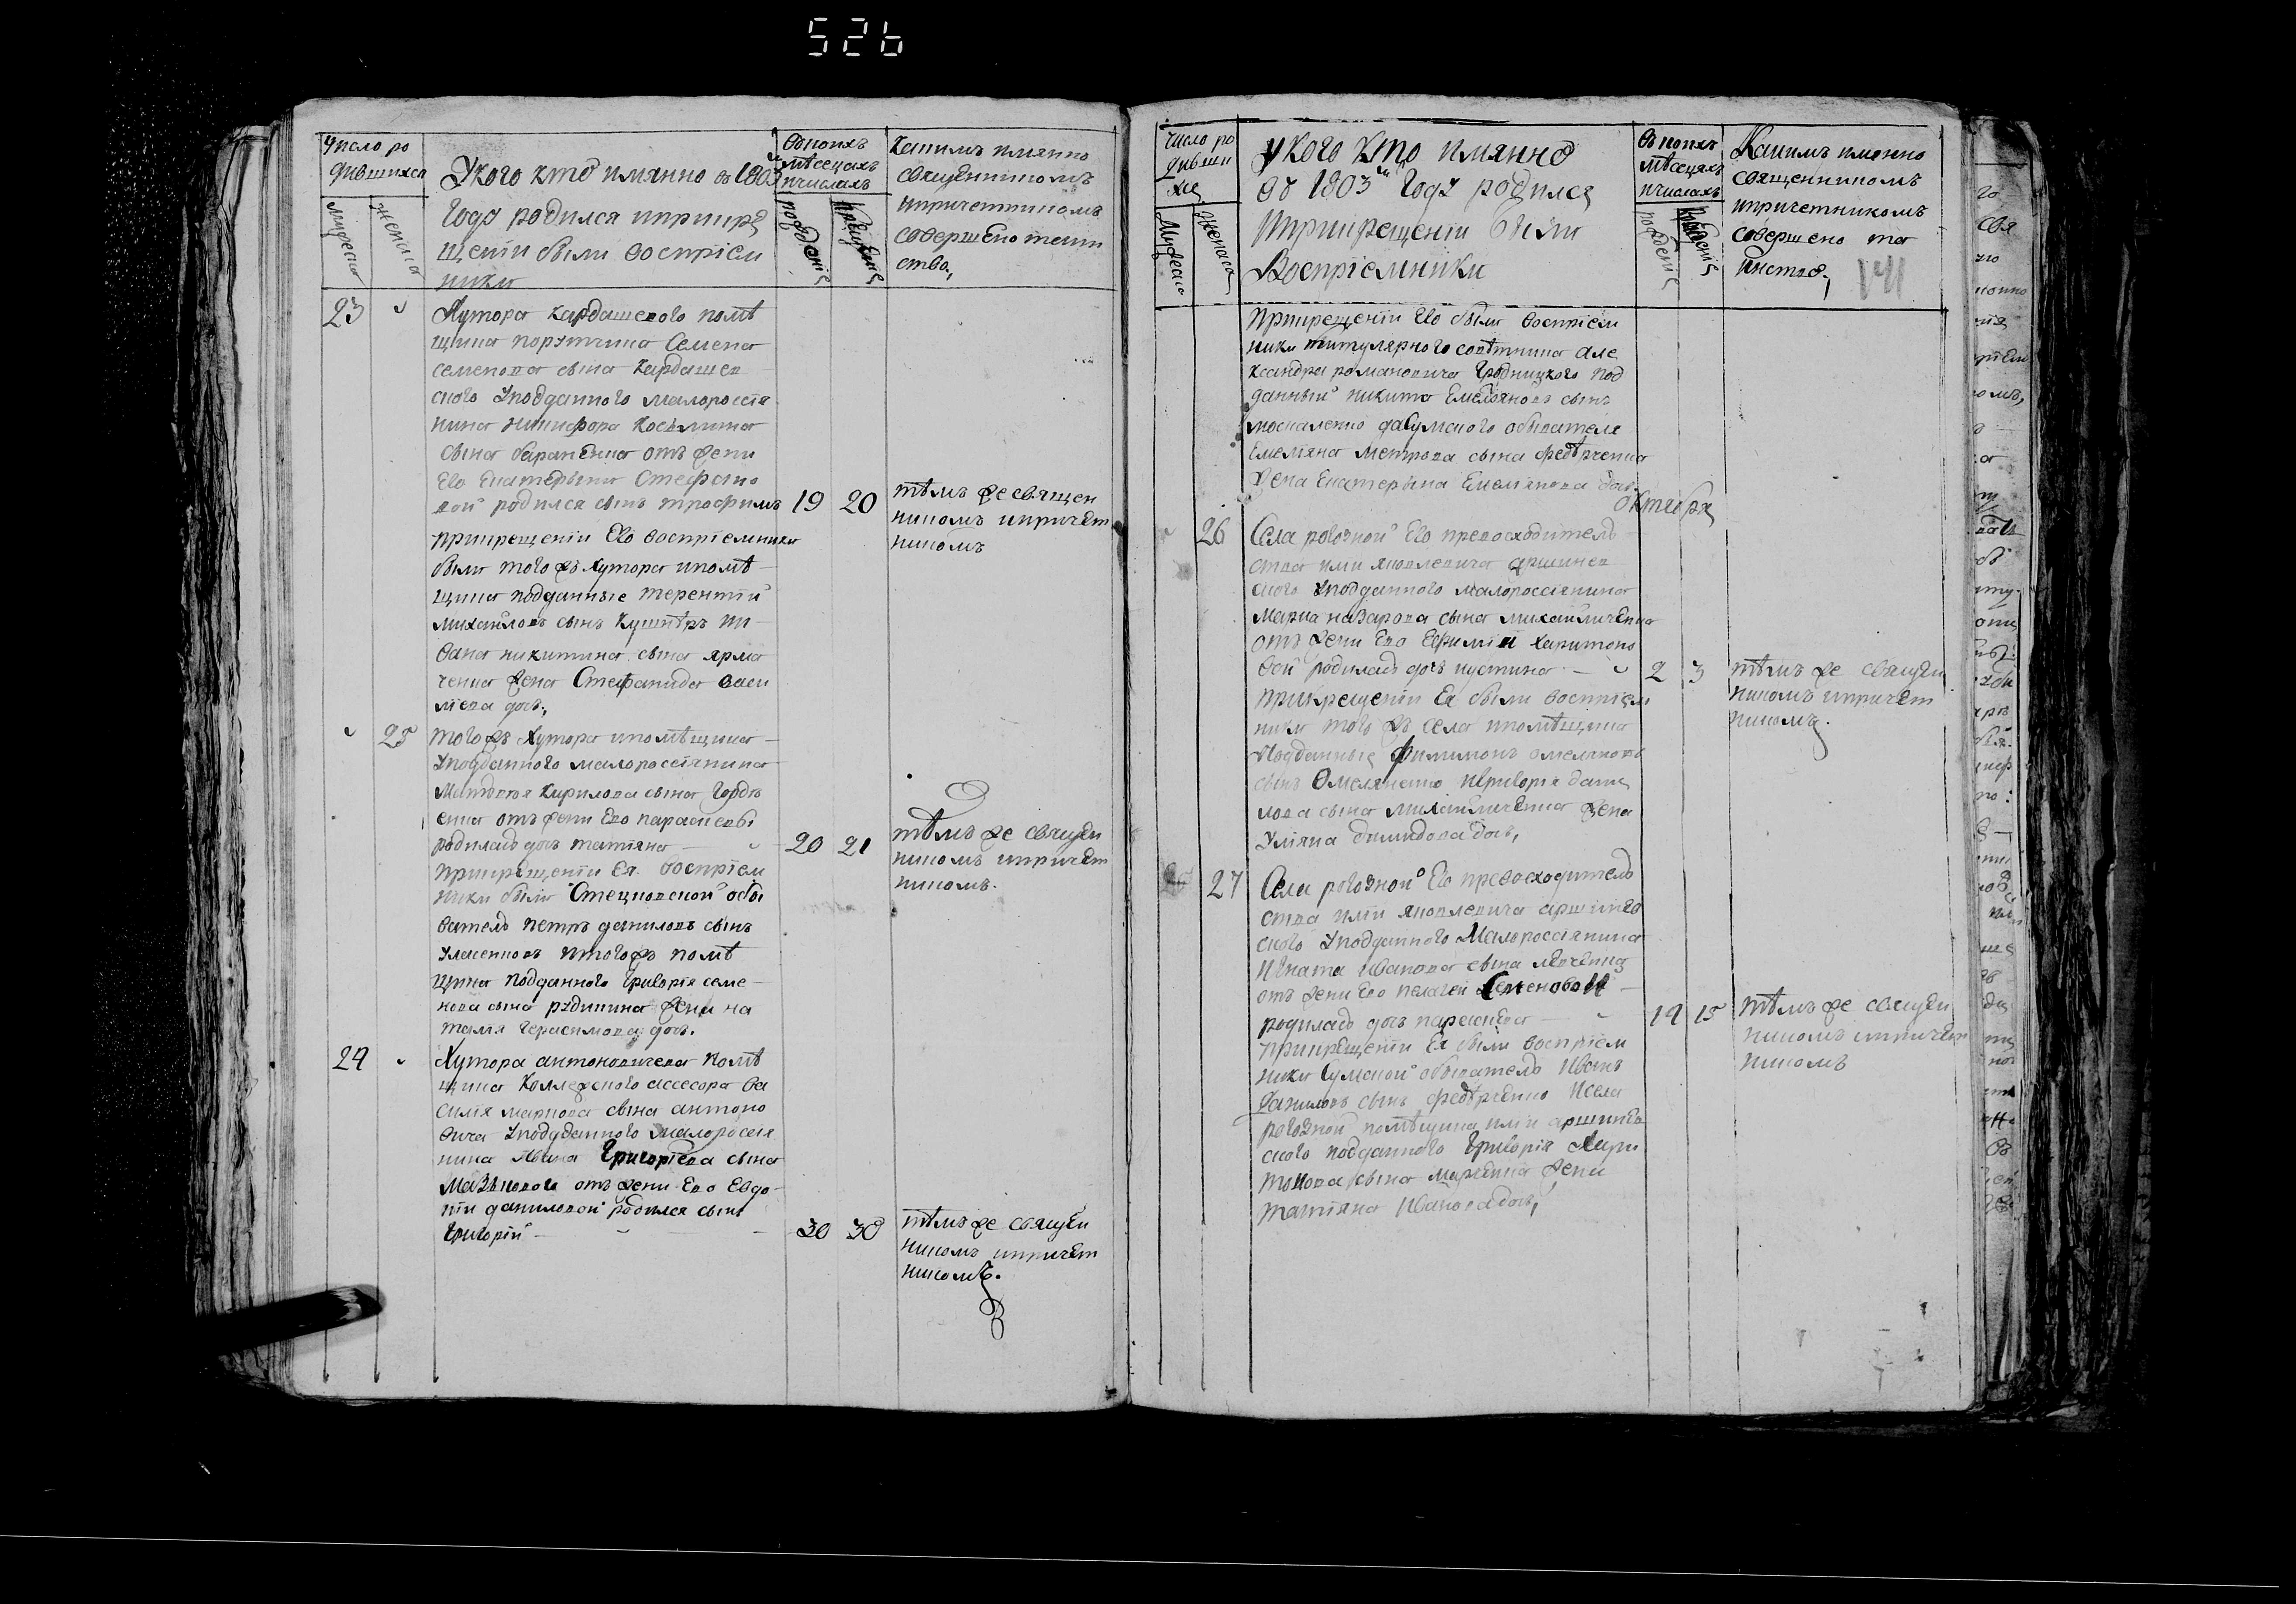 526
Число ро
дившихся
мужеска
женска
У кого кто имянно въ 1803м
Годѣ родился и при кре
щеніи были воспріем
ники
въ коихъ
мѣсецахъ
и числахъ
рожденіе
крещеніе
Какимъ имянно
священникомъ
и причетникомъ
совершено таин
ство,
23
Хутора Кардашевого помѣ
щика порутчика Семена
Семенова сына Кардашев
ского у подданного малороссія
нина Никифора Косьмина
сына баранника отъ жены
Его Екатерины Стефано
вой родился сынъ Трофимъ 19 20
при крещеніи Его воспріемники
были того жъ Хутора и помѣ
щика подданные Терентій
Михайловъ сынъ Кушнѣръ и и
вана никитина сына ярма
ченка жена Стефанида васи
ліева доч.,
тѣмъ же священ
никомъ и причет
никомъ
25
того жъ Хутора и помѣщика
у подданного малоросіянина
Матвѣя Кирилова сына Гордѣ
енка отъ жены Его параскевы
родилась дочъ татіяна 20 21
при крещеніи Ея воспріем
ники были Стецковской обы
ватель Петръ даниловъ сынъ
и того жъ помѣ
щика подданного Григорія семе
нова сына рудишина жена на
талія Герасимова доч.
тѣмъ же священ
никомъ и причет
никомъ.
24
Хутора антоновичева помѣ
щика Коллежского ассесора ва
силія маркова сына антоно
вича у подданного малоросія
нина Ивана Григоріева сына
отъ жены Его Евдо
кіи даниловой родился сынъ
Григорій 30 30
тѣмъ же священ
никомъ и причет
никомъ.
Число ро
дивши
хся
Мужеска
Женска
у кого кто имянно
въ 1803м Годѣ родился
и при крещеніи были
Воспріемники
въ коихъ
мѣсецахъ
и числахъ
рожденіе
крещеніе
Какимъ имянно
священникомъ
и причетникомъ
совершено та
инство,
141
при крещеніи Его были воспріем
ники титулярного совѣтника Але
ксандра романовича Гродницкого под
данный никита Емельяновъ сынъ
москаленко да сумского обывателя
Емеліяна Метрова сына федѣрченка
жена Екатерина Емеліянова доч.
октября
26
Села роговной Его превосходитель
ства иліи яковлевича аршинев
ского у подданного малороссіянина
Марка назарова сына михайличенка
отъ жены Его Ефиміи Харитоно
вой родилась дочъ иустина 2 3
при крещеніи Ея были воспріем
ники того жъ села и помѣщика
подданные филимонъ омеляновъ
сынъ Омеляненко и Григорія дани
лова сына михайличенка жена
Уліяна дімидова доч,
тѣмъ же священ
никомъ и причет
никомъ.
27
Села роговной Его превосходитель
ства иліи яковлевича аршинев
ского у подданного Малороссіянина
Игната Иванова сына левченка
отъ жены Его пелагеи Семеновой
родилась дочъ параскева 14 15
при крещеніи Ея были воспріем
ники Сумской обыватель Иванъ
даниловъ сынъ федѣрченко и села
роговной помѣщика иліи аршинев
ского подданного Григорія Хари
тонова сына жена
татіяна Иванова доч,
тѣмъ же священ
никомъ и причет
никомъ